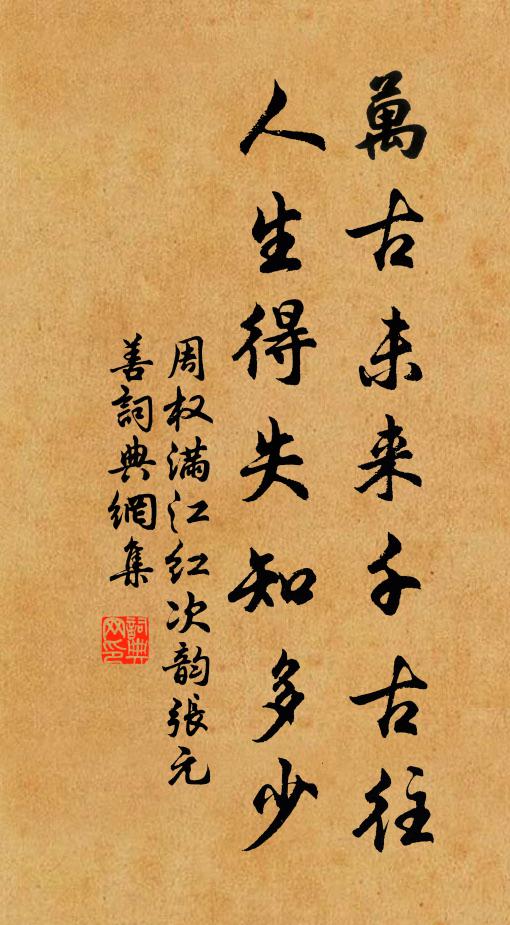 萬古未来千古往
人生得失知多少
周权满江红次韵張元
善詞典網集
詞典网印